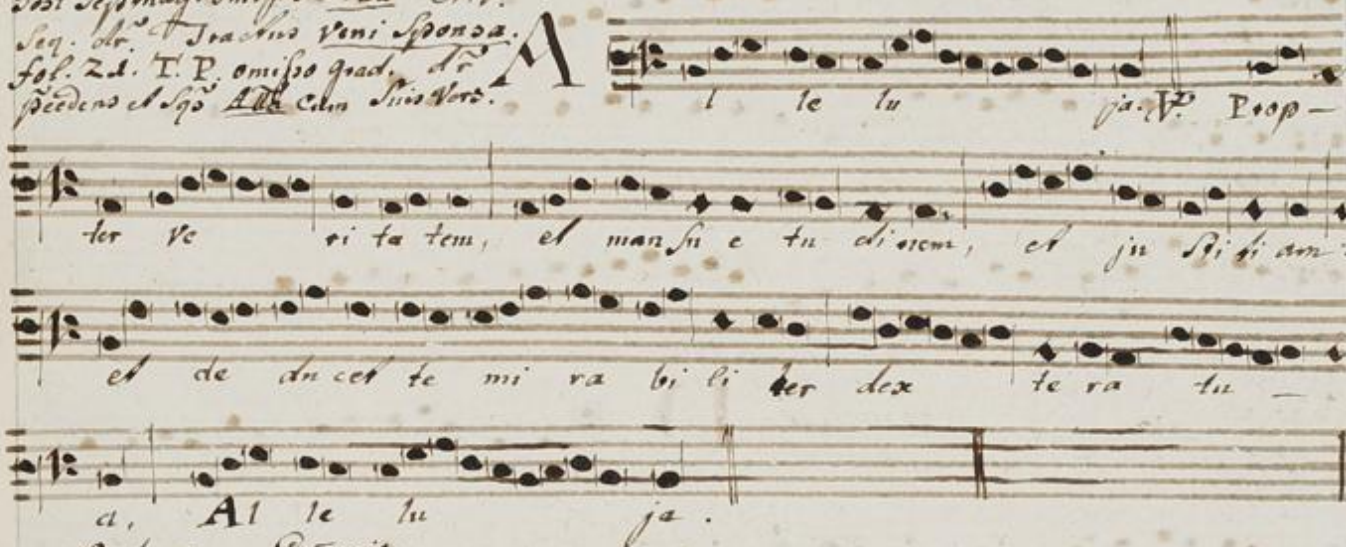 Seq. dr̃ Tractus Veni Sponsa.
fol. 21. T. P. omisso grad. dr̃
p̃cedens et sqs̃ All̃a cum suis Vers.
A l le lu ja. ℣. Prop–
ter ve ri ta tem, et man su e tu di nem, et ju sti ti am:
et de du cet te mi ra bi li ter dex te ra tu –
a, Al le lu ja.